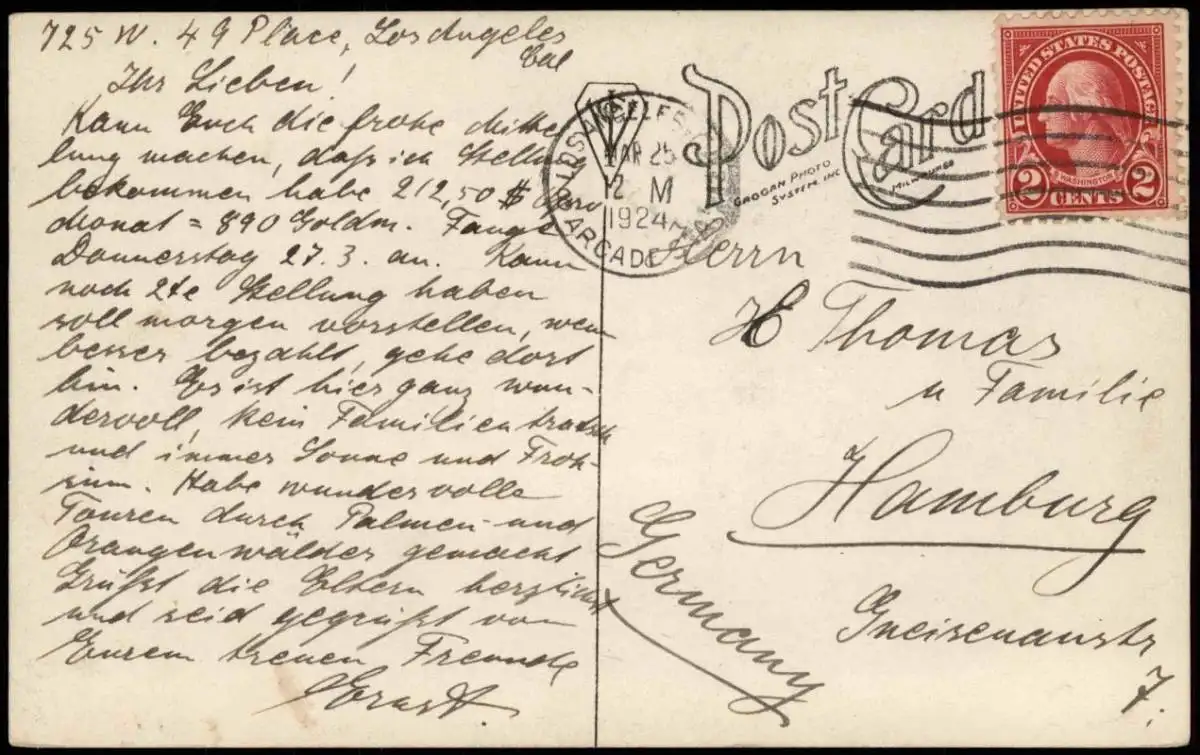 725 W. 49 Place, Los Angeles
Cal
Ihr Lieben!
Kann Euch die frohe Mittei
lung machen, daß ich Stellung
bekommen habe 212,50 $ pro
Monat = 890 Goldm. Fange
Donnerstag 27.3. an. Kann
noch 2te Stellung haben
soll morgen vorstellen, wenn
besser bezahlt, gehe dort
hin. Es ist hier ganz wun-
dervoll, kein Familientratsch
und immer Sonne und Froh-
sinn. Habe wundervolle
Touren durch Palmen- und
Orangenwälder gemacht
Grüßt die Eltern herzlichst
und seid gegrüßt von
Eurem treuen Freunde
Ernst.
Post Card
GROGAN PHOTO
SYSTEM, INC
MILWAUKEE
LOS ANGELES
MAR 25
12 M
1924
ARCADE STA
UNITED STATES POSTAGE
WASHINGTON
2 CENTS 2
Herrn
H Thomas
u Familie
Hamburg
Gneisenaustr
7.
Germany